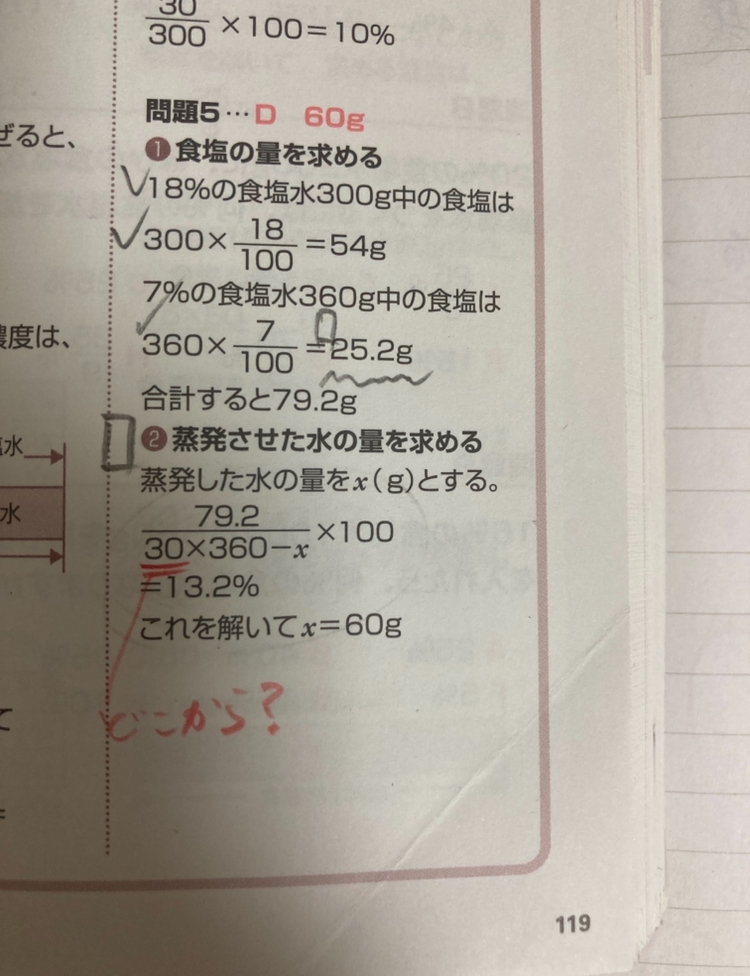 30/300×100=10%
問題5…D 60g
❶食塩の量を求める
18%の食塩水300g中の食塩は
300×18/100=54g
7%の食塩水360g中の食塩は
360×7/100=25.2g
合計すると79.2g
❷蒸発させた水の量を求める
蒸発した水の量をx(g)とする。
79.2/30×360−x×100
=13.2%
これを解いてx=60g
どこから?
ぜると、
濃度は、
水
水
て
=
119